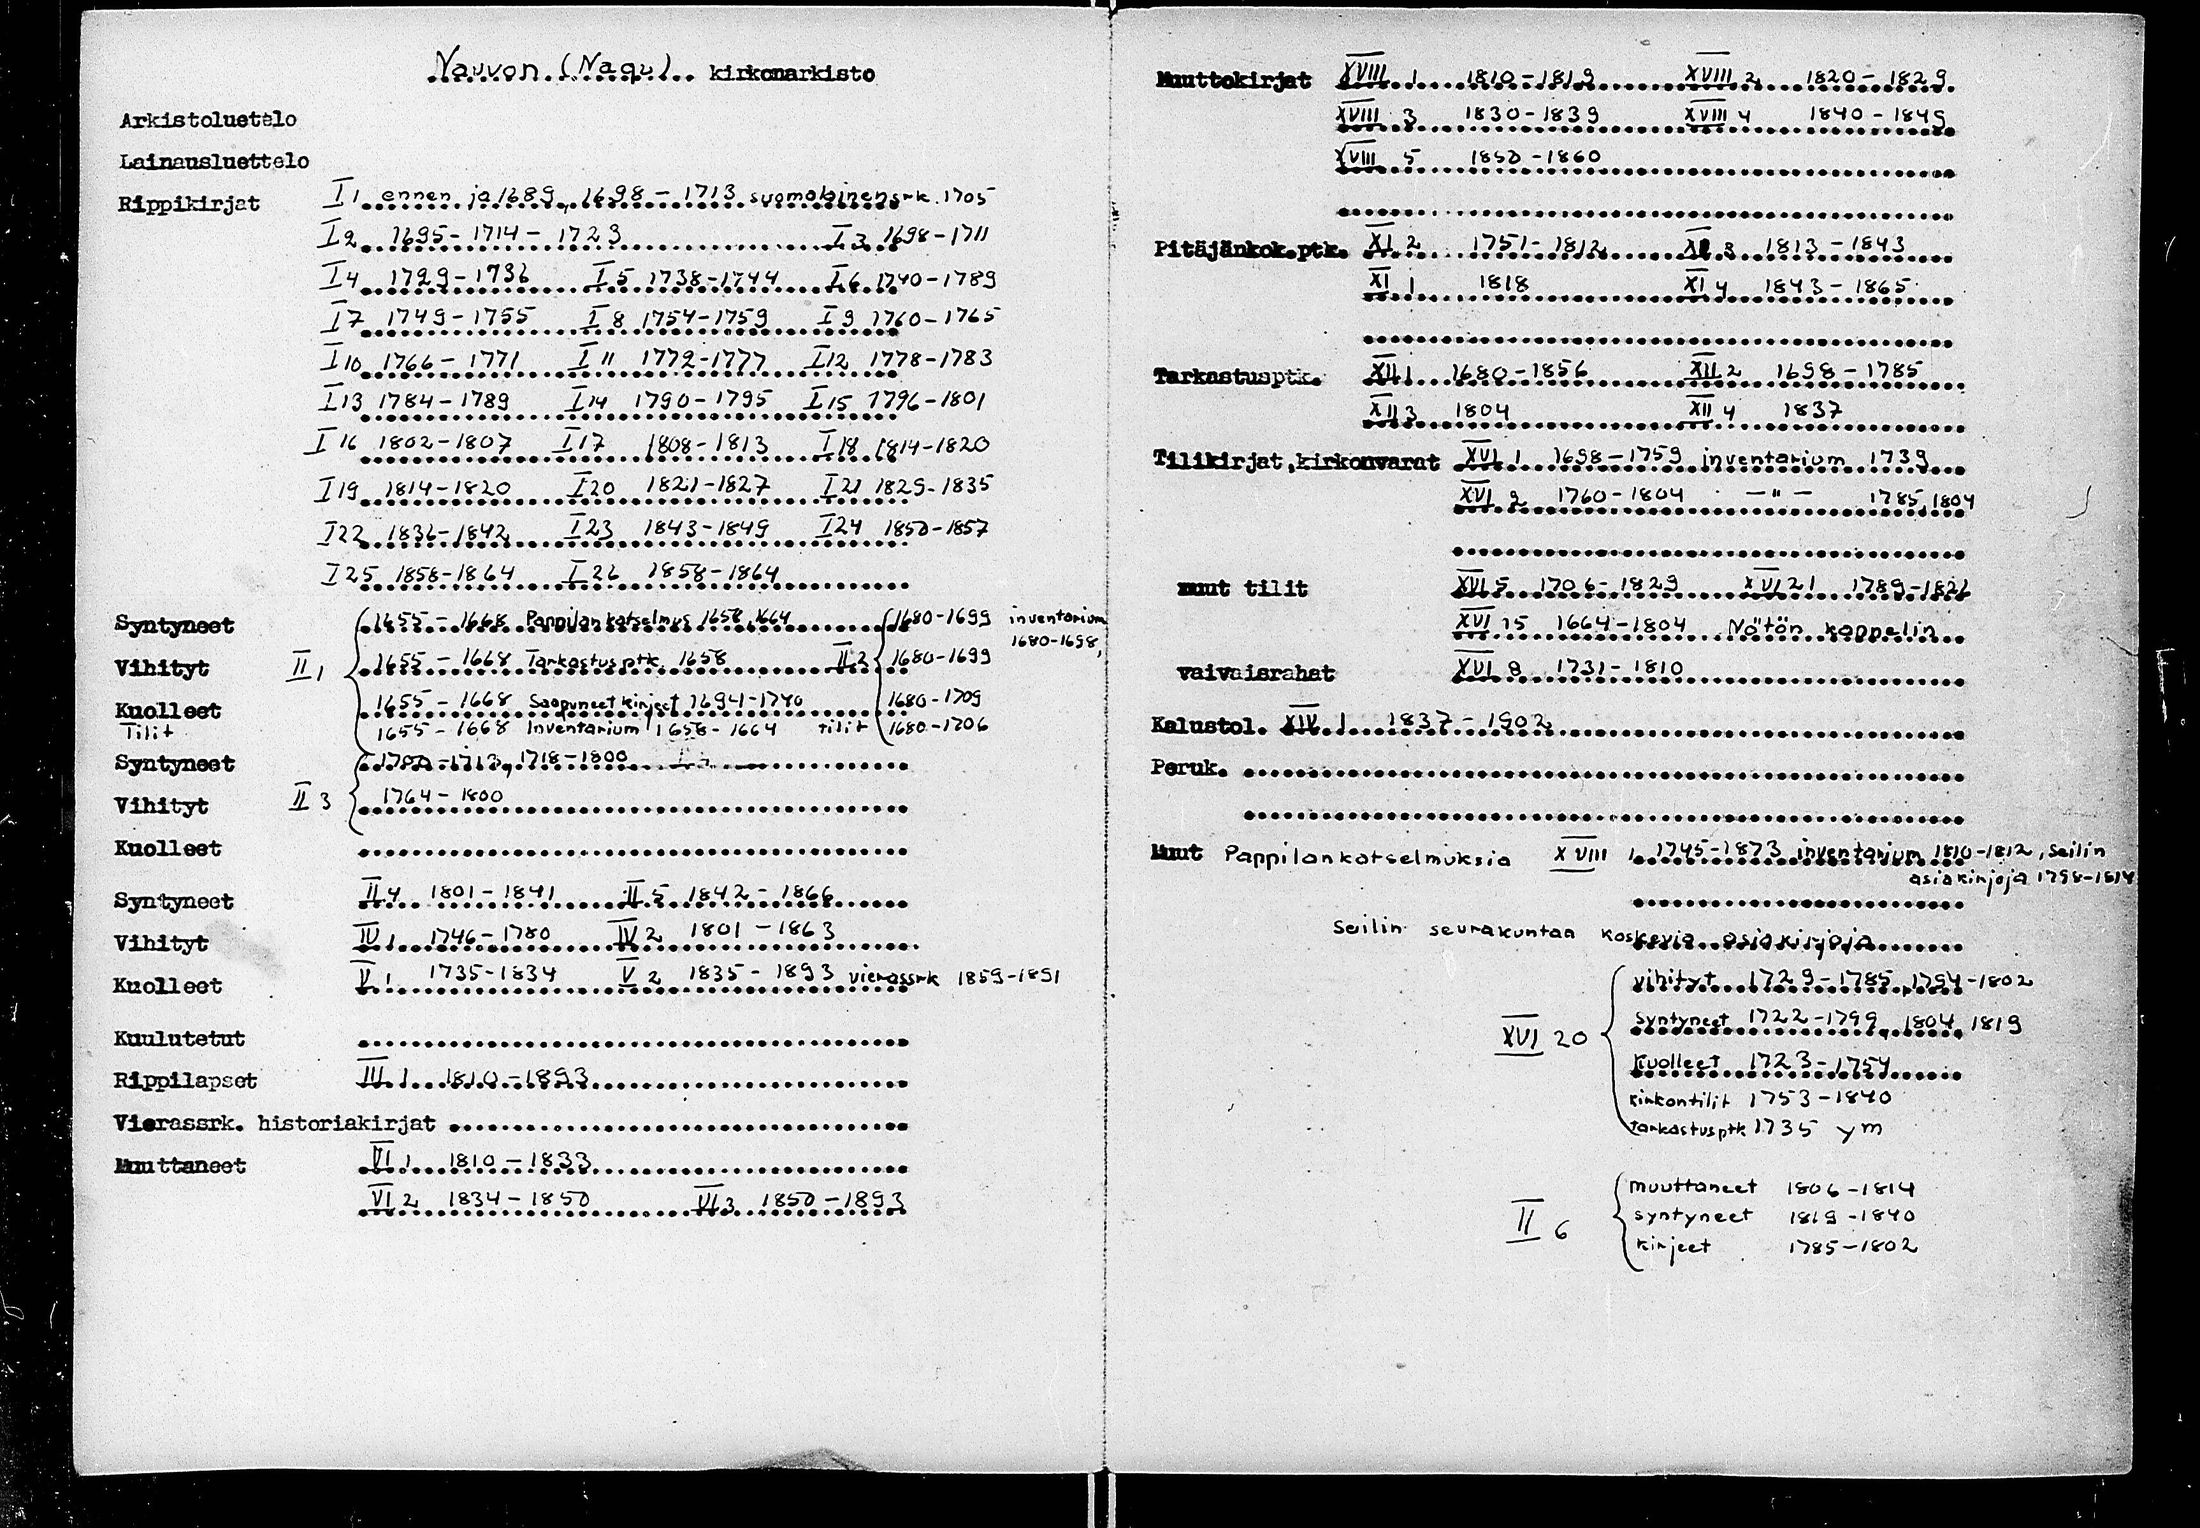 Nauvon (Nagu) kirkonarkisto
Arkistoluetelo
Lainausluettelo
Rippikirjat I 1 ennen ja 1689, 1698-1713 suomalainensrk. 1705
I 2 1695-1714-1723 I 3 1698-1711
I 4 1729-1736 I 5 1738-1744 I 6 1740-1789
I 7 1749-1755 I 8 1754-1759 I 9 1760-1765
I 10 1766-1771 I 11 1772-1777 I 12 1778-1783
I 13 1784-1789 I 14 1790-1795 I 15 1796-1801
I 16 1802-1807 I 17 1808-1813 I 18 1814-1820
I 19 1814-1820 I 20 1821-1827 I 21 1829-1835
I 22 1836-1842 I 23 1843-1849 I 24 1850-1857
I 25 1858-1864 I 26 1858-1864
Syntyneet 1655-1668 Pappilankatselmus 1658, 1664 1680-1699 inventarium
1680-1698,
Vihityt II 1 1655-1668 Tarkastusptk. 1658 II 2 1680-1699
Kuolleet 1655-1668 Saapuneet kirjeet 1694-1740 1680-1709
Tilit 1655-1668 Inventarium 1658-1664 tilit 1680-1706
Syntyneet 1700-1713, 1718-1800
Vihityt II 3 1764-1800
Kuolleet
Syntyneet II 4 1801-1841 II 5 1842-1866
Vihityt IV 1 1746-1780 IV 2 1801-1863
Kuolleet V 1 1735-1834 V 2 1835-1893 vierassrk 1859-1891
Kuulutetut
Rippilapset III 1 1810-1893
Vierassrk. historiakirjat
Muuttaneet VI 1 1810-1833
VI 2 1834-1850 VI 3 1850-1893
Muuttokirjat XVIII 1 1810-1819 XVIII 2 1820-1829
XVIII 3 1830-1839 XVIII 4 1840-1849
XVIII 5 1850-1860
Pitäjänkok.ptk. XI 2 1751-1812 XI 3 1813-1843
XI 1 1818 XI 4 1843-1865
Tarkastusptk. XII 1 1680-1856 XII 2 1698-1785
XII 3 1804 XII 4 1837
Tilikirjat,kirkonvarat XVI 1 1698-1759 inventarium 1739
XVI 2 1760-1804 -"- 1785, 1804
muut tilit XVI 5 1706-1829 XVI 21 1789-1826
XVI 15 1664-1804 Nötön kappelin
vaivaisrahat XVI 8 1731-1810
Kalustol. XIV 1 1837-1902
Peruk.
Muut Pappilankatselmuksia XVIII 1 1745-1873 inventarium 1810-1812, Seilin
asiakirjoja 1798-1814
Seilin seurakuntaa koskevia asiakirjoja
vihityt 1729-1785, 1794-1802
syntyneet 1722-1799, 1804, 1819
XVI 20
kuolleet 1723-1754
kirkontilit 1753-1840
tarkastusptk 1735 ym
muuttaneet 1806-1814
II 6 syntyneet 1819-1840
kirjeet 1785-1802